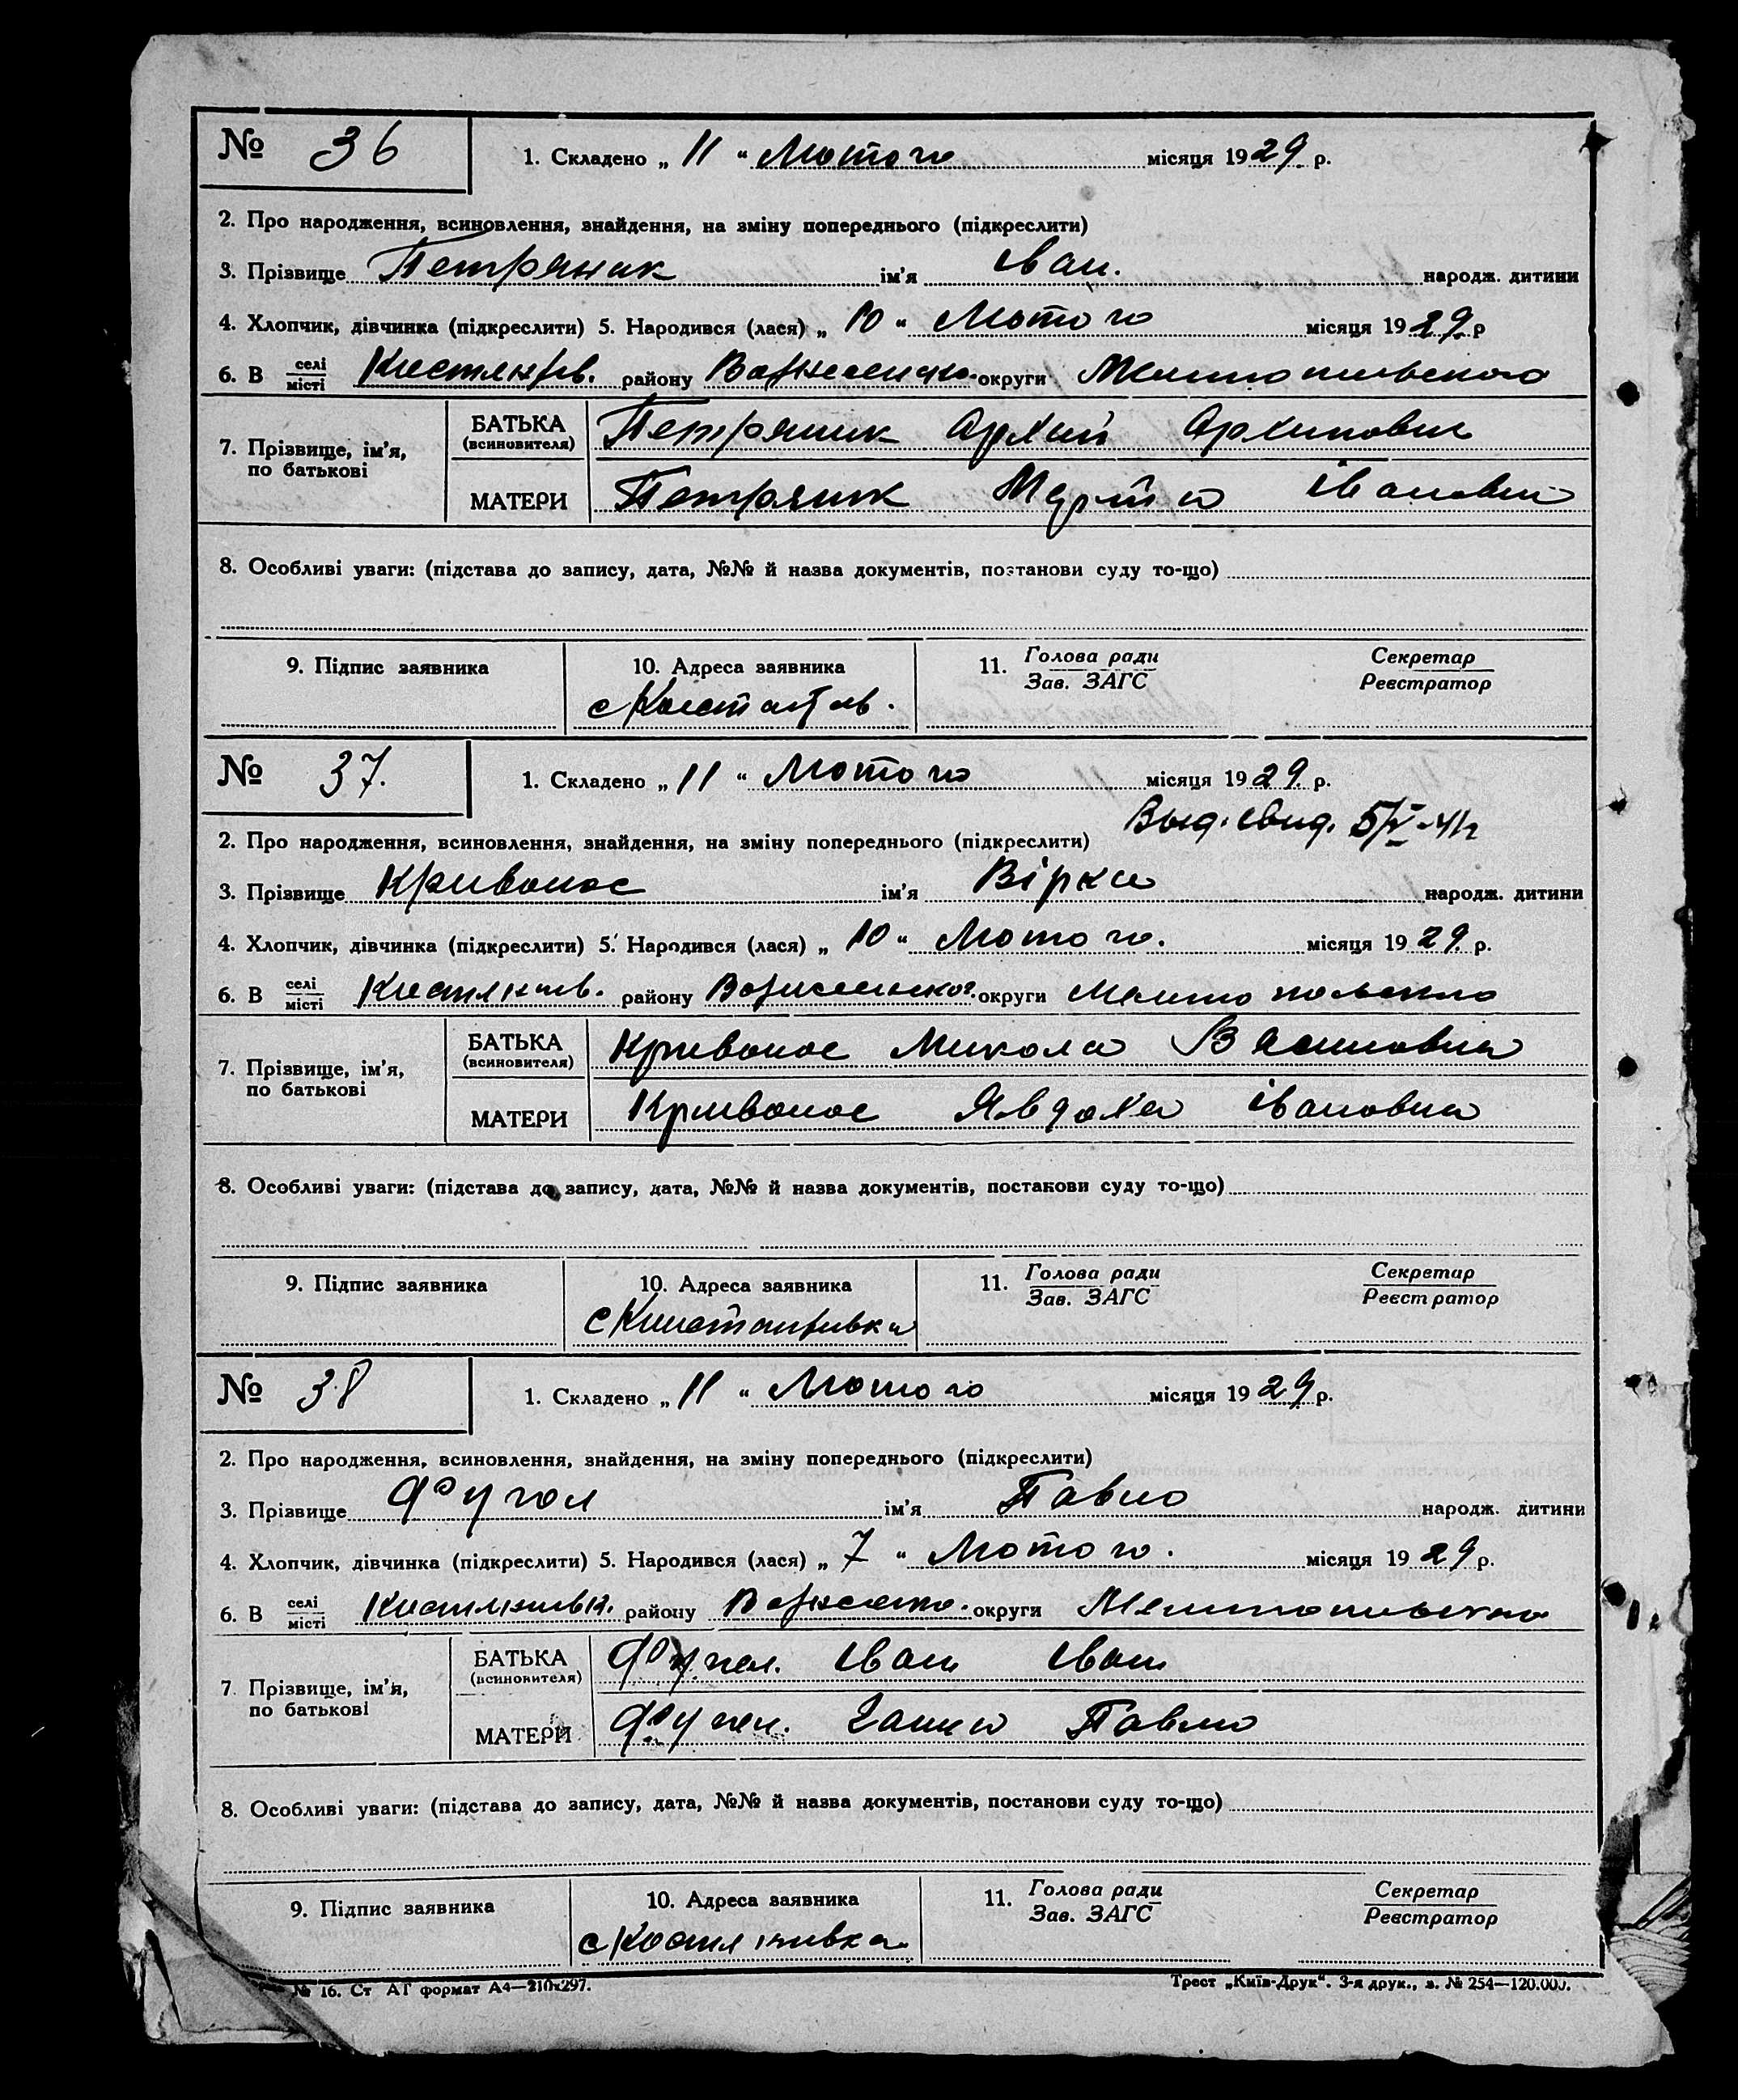 № 36 1. Складено „ 11 “ Лютого місяця 1929 р.
2. Про народження, всиновлення, знайдення, на зміну попереднього (підкреслити)
3. Прізвище Петряник ім'я Іван. народж. дитини
4. Хлопчик, дівчинка (підкреслити) 5. Народився (лася) „ 10 “ Лютого місяця 1929 р
6. В селі/місті району округи Мелитопольського
7. Прізвище, ім'я, по батькові
БАТЬКА (всиновителя) Петряник Архип Архипович
МАТЕРИ Петряник Марта Івановна
8. Особливі уваги: (підстава до запису, дата, №№ й назва документів, постанови суду то-що)
9. Підпис заявника 10. Адреса заявника 11. Голова ради/Зав. ЗАГС Секретар/Реєстратор
с
№ 37. 1. Складено „ 11 “ Лютого місяця 1929. р.
Выд. свид. 5/V-41г
2. Про народження, всиновлення, знайдення, на зміну попереднього (підкреслити)
3. Прізвище Кривонос ім'я Вірка народж. дитини
4. Хлопчик, дівчинка (підкреслити) 5. Народився (лася) „ 10 “ Лютого. місяця 1929. р.
6. В селі/місті району округи Мелитопольского
7. Прізвище, ім'я, по батькові
БАТЬКА (всиновителя) Кривонос Микола
МАТЕРИ Кривонос Явдоха Івановна
8. Особливі уваги: (підстава до запису, дата, №№ й назва документів, постанови суду то-що)
9. Підпис заявника 10. Адреса заявника 11. Голова ради/Зав. ЗАГС Секретар/Реєстратор
с
№ 38 1. Складено „ 11 “ Лютого місяця 1929 р.
2. Про народження, всиновлення, знайдення, на зміну попереднього (підкреслити)
3. Прізвище ім'я Павло народж. дитини
4. Хлопчик, дівчинка (підкреслити) 5. Народився (лася) „ 7 “ Лютого. місяця 1929 р.
6. В селі/місті району округи Мелитопольского
7. Прізвище, ім'я, по батькові
БАТЬКА (всиновителя) Іван Іван
МАТЕРИ Ганна Павло
8. Особливі уваги: (підстава до запису, дата, №№ й назва документів, постанови суду то-що)
9. Підпис заявника 10. Адреса заявника 11. Голова ради/Зав. ЗАГС Секретар/Реєстратор
с
№ 16. Ст АГ формат А4—210х297. Трест „Київ-Друк“. 3-я друк., з. № 254—120.000.